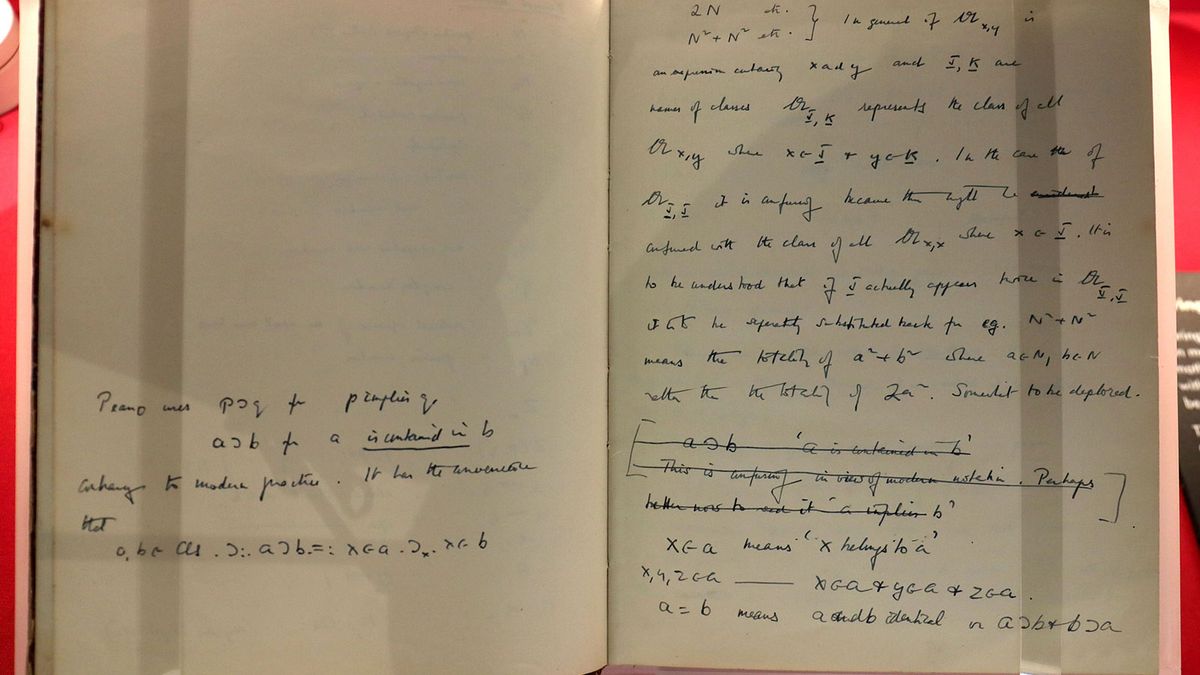 Peano uses p ⊃ q for p implies q
a ⊃ b for a is contained in b
contrary to modern practice. It has the convenience
that
a, b ϵ Cls . ⊃ :. a ⊃ b . = : x ϵ a . ⊃ₓ . x ϵ b
2N etc.
N² + N² etc. } In general if 𝔄 x,y is
an expression containing x and y and J, K are
names of classes 𝔄 J, K represents the class of all
𝔄 x,y where x ϵ J + y ϵ K. In the case of
𝔄 J, J it is confusing because this might be
confused with the class of all 𝔄 x,x where x ϵ J. It is
to be understood that if J actually appears twice in 𝔄 J, J
it is to be separately substituted back for eg. N² + N²
means the totality of a² + b² where a ϵ N, b ϵ N
rather than the totality of 2a². Somewhat to be deplored.
[ a ⊃ b 'a is contained in b'
This is confusing in view of modern notation. Perhaps
better now to read it 'a implies b' ]
x ϵ a means 'x belongs to a'
x, y, z ϵ a —— x ϵ a + y ϵ a + z ϵ a.
a = b means a and b identical or a ⊃ b + b ⊃ a